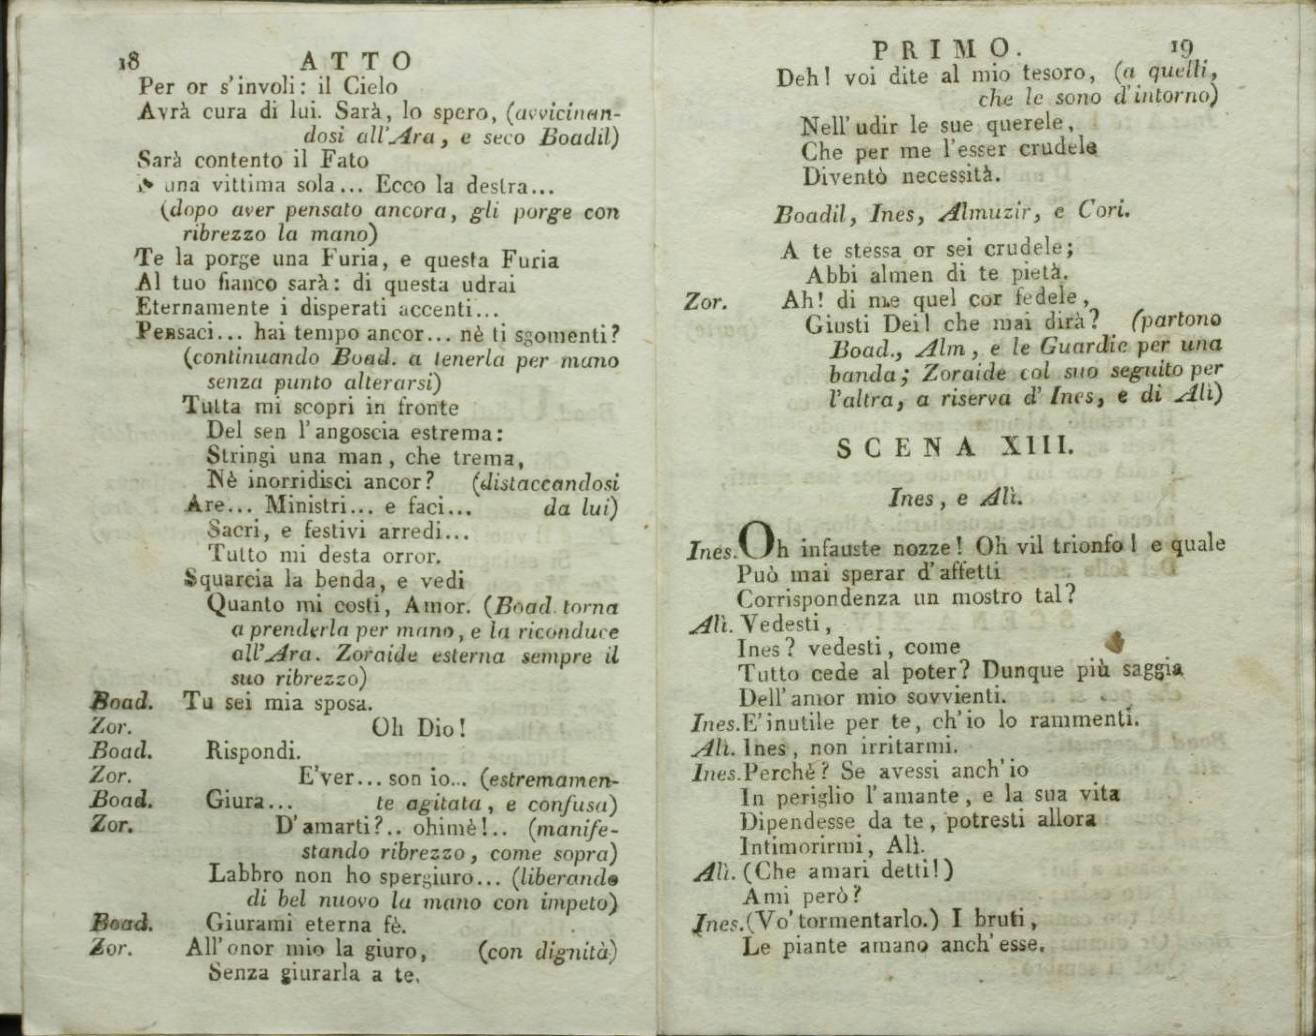 18 ATTO
Per or s'involi: il Cielo
Avrà cura di lui. Sarà, lo spero, (avvicinan-
dosi all'Ara, e seco Boadil)
Sarà contento il Fato
una vittima sola... Ecco la destra...
(dopo aver pensato ancora, gli porge con
ribrezzo la mano)
Te la porge una Furia, e questa Furia
Al tuo fianco sarà: di questa udrai
Eternamente i disperati accenti...
Pensaci... hai tempo ancor... nè ti sgomenti?
(continuando Boad. a tenerla per mano
senza punto alterarsi)
Tutta mi scopri in fronte
Del sen l'angoscia estrema:
Stringi una man, che trema,
Nè inorridisci ancor? (distaccandosi
Are... Ministri... e faci... da lui)
Sacri, e festivi arredi...
Tutto mi desta orror.
Squarcia la benda, e vedi
Quanto mi costi, Amor. (Boad. torna
a prenderla per mano, e la riconduce
all'Ara. Zoraide esterna sempre il
suo ribrezzo)
Boad. Tu sei mia sposa.
Zor. Oh Dio!
Boad. Rispondi.
Zor. E'ver... son io... (estremamen-
Boad. Giura... te agitata, e confusa)
Zor. D'amarti?.. ohimè!.. (manife-
stando ribrezzo, come sopra)
Labbro non ho spergiuro... (liberando
di bel nuovo la mano con impeto)
Boad. Giurami eterna fè.
Zor. All'onor mio la giuro, (con dignità)
Senza giurarla a te.
PRIMO. 19
Deh! voi dite al mio tesoro, (a quelli,
che le sono d'intorno)
Nell'udir le sue querele,
Che per me l'esser crudele
Diventò necessità.
Boadil, Ines, Almuzir, e Cori.
A te stessa or sei crudele;
Abbi almen di te pietà.
Zor. Ah! di me quel cor fedele,
Giusti Dei! che mai dirà? (partono
Boad., Alm, e le Guardie per una
banda; Zoraide col suo seguito per
l'altra, a riserva d'Ines, e di Alì)
SCENA XIII.
Ines, e Alì.
Ines. Oh infauste nozze! Oh vil trionfo! e quale
Può mai sperar d'affetti
Corrispondenza un mostro tal?
Alì. Vedesti,
Ines? vedesti, come
Tutto cede al poter? Dunque più saggia
Dell'amor mio sovvienti.
Ines. E'inutile per te, ch'io lo rammenti.
Alì. Ines, non irritarmi.
Ines. Perchè? Se avessi anch'io
In periglio l'amante, e la sua vita
Dipendesse da te, potresti allora
Intimorirmi, Alì.
Alì. (Che amari detti!)
Ami però?
Ines. (Vo'tormentarlo.) I bruti,
Le piante amano anch'esse.